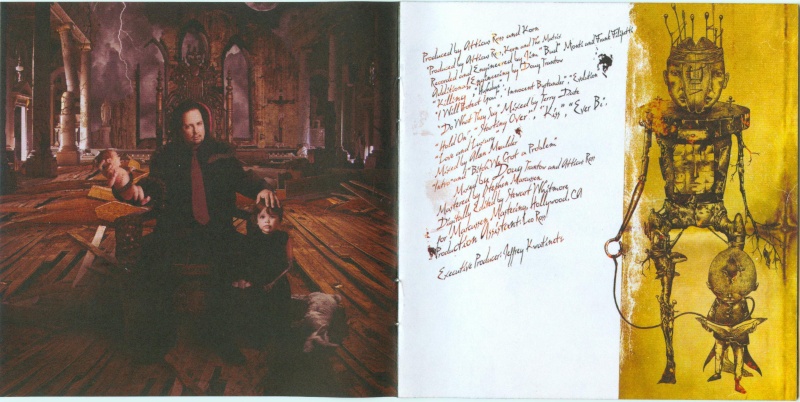 Produced by Atticus Ross and Korn
Produced by Atticus Ross, Korn and The Matrix
Recorded and Engineered by Jim "Bud" Monti and Frank Filipetti
Additional Engineering by Doug Trantow
"Killing", "Hushabye", "Innocent Bystander", "Evolution"
"I Will Protect You",
"Do What They Say" Mixed by Terry Date
"Hold On", "Starting Over", "Kiss", "Ever Be",
"Love and Luxury"
Mixed by Alan Moulder
"Intro" and "Bitch We Got a Problem"
Mixed by: Doug Trantow and Atticus Ross
Mastered by Stephen Marcussen
Digitally Edited by Stewart Whitmore
for Marcussen Mastering, Hollywood, CA
Production Assistant: Leo Ross
Executive Producer: Jeffrey Kwatinetz